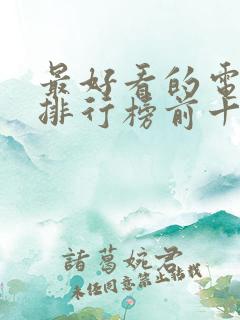 最好看的電
排行榜前十
諸葛婉君
未任同意禁止轉載